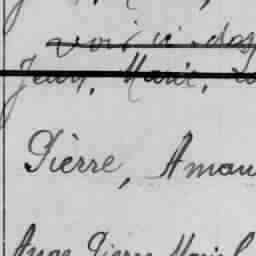 voir ci-dos
Jean, Marie,
Pièrre, Aman
Ange Pierre Marie